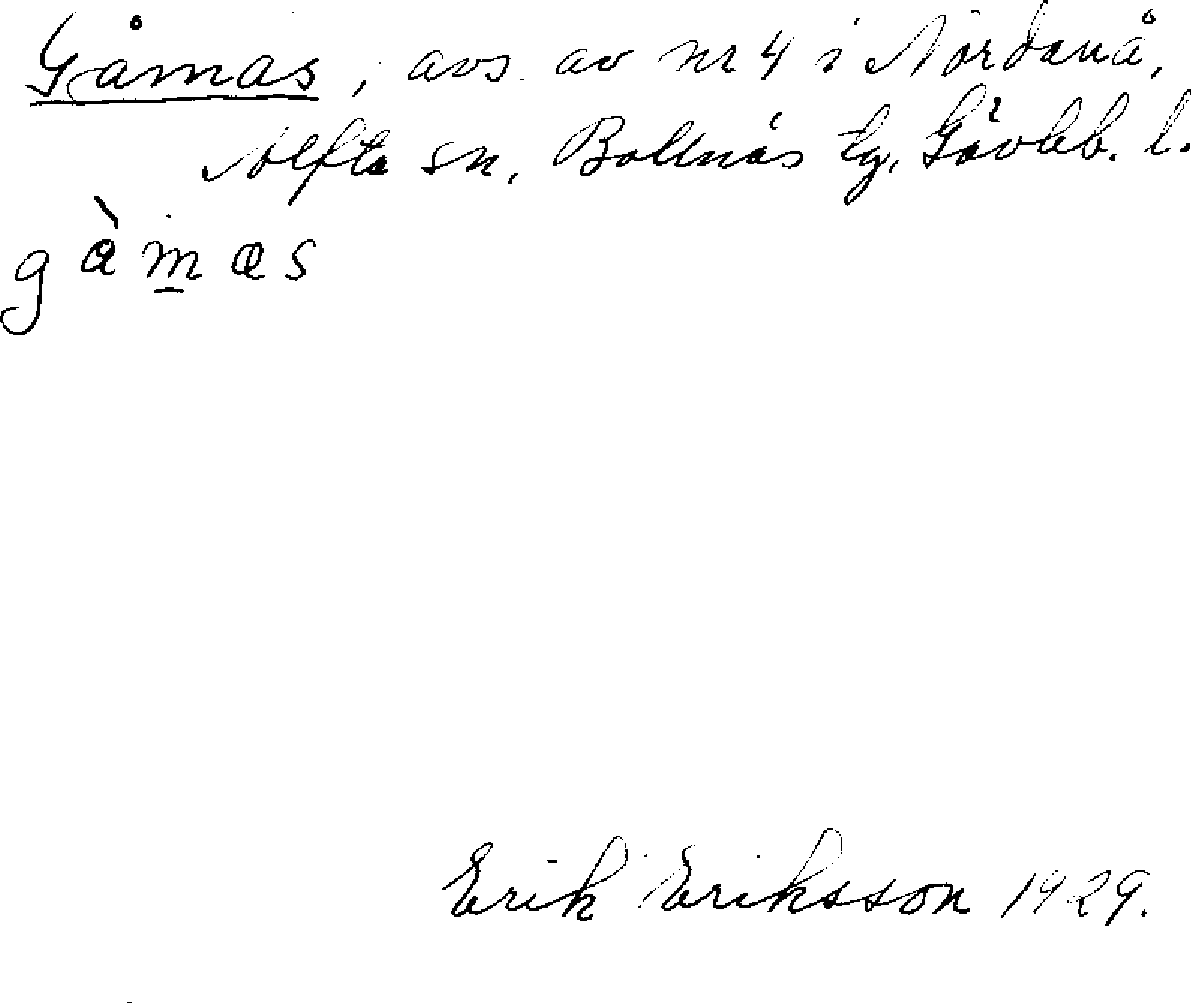 Gåmas, avs. av nr 4 i Nordanå,
Alfta sn, Bollnäs tg, Gävleb. l.
gàmas
Erik Eriksson 1929.